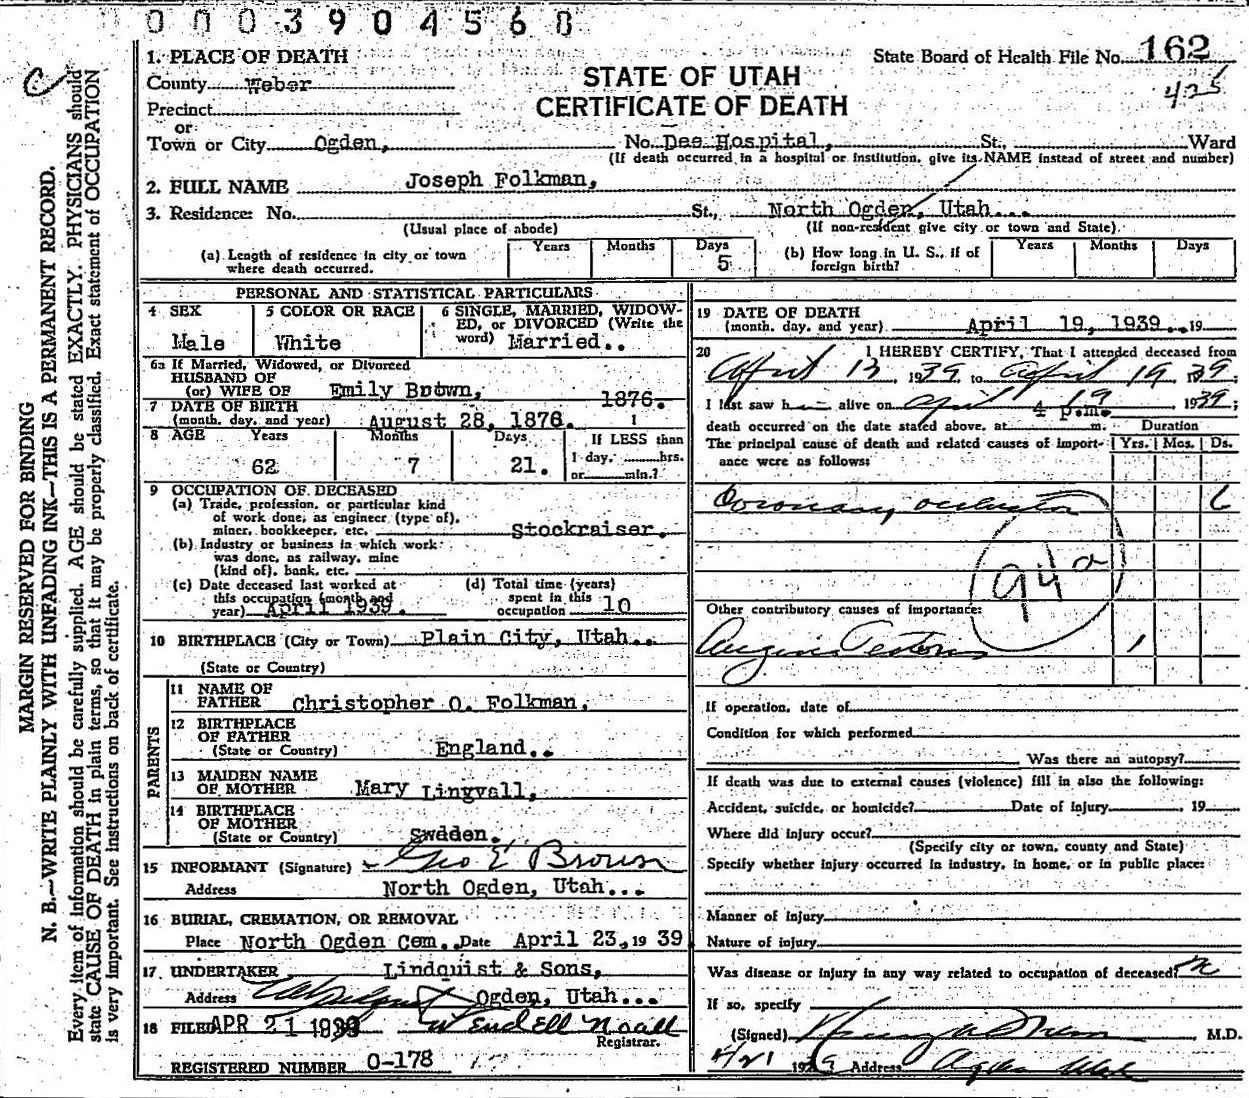 0003904568
1. PLACE OF DEATH
State Board of Health File No. 162
County Weber
STATE OF UTAH
425
Precinct
CERTIFICATE OF DEATH
or
Town or City Ogden, No. Dee Hospital, St., Ward
(If death occurred in a hospital or institution, give its NAME instead of street and number)
2. FULL NAME Joseph Folkman,
3. Residence: No. St., North Ogden, Utah...
(Usual place of abode) (If non-resident give city or town and State)
(a) Length of residence in city or town where death occurred. Years Months Days 5
(b) How long in U. S., if of foreign birth? Years Months Days
PERSONAL AND STATISTICAL PARTICULARS
4 SEX
Male
5 COLOR OR RACE
White
6 SINGLE, MARRIED, WIDOW-
ED, or DIVORCED (Write the
word) Married..
6a If Married, Widowed, or Divorced
HUSBAND OF
(or) WIFE OF Emily Brown,
7 DATE OF BIRTH 1876.
(month, day, and year) August 28, 1876. 1
8 AGE Years Months Days If LESS than
62 7 21. 1 day, hrs.
or min.?
9 OCCUPATION OF DECEASED
(a) Trade, profession, or particular kind
of work done, as engineer (type of),
miner, bookkeeper, etc. Stockraiser.
(b) Industry or business in which work
was done, as railway, mine
(kind of), bank, etc.
(c) Date deceased last worked at
this occupation (month and
year) April 1939.
(d) Total time (years)
spent in this
occupation 10
10 BIRTHPLACE (City or Town) Plain City, Utah..
(State or Country)
PARENTS
11 NAME OF
FATHER Christopher O. Folkman.
12 BIRTHPLACE
OF FATHER
(State or Country) England..
13 MAIDEN NAME
OF MOTHER Mary Lingvall,
14 BIRTHPLACE
OF MOTHER
(State or Country) Swdden.
15 INFORMANT (Signature) Geo E Brown
Address North Ogden, Utah...
16 BURIAL, CREMATION, OR REMOVAL
Place North Ogden Cem. Date April 23, 19 39
17. UNDERTAKER Lindquist & Sons,
Address Ogden, Utah...
18 FILED APR 21 1939 Wendell Noall
Registrar.
REGISTERED NUMBER 0-178
19 DATE OF DEATH
(month, day, and year) April 19, 1939. 19
20 I HEREBY CERTIFY, That I attended deceased from
April 13, 1939, to April 19 1939.
I last saw h alive on April 19 1939;
death occurred on the date stated above, at 4 p.m. m. Duration
The principal cause of death and related causes of import-
ance were as follows: Yrs. Mos. Ds.
Coronary occlusion 6
94a
Other contributory causes of importance:
Angina Pectoris 1
If operation, date of
Condition for which performed
Was there an autopsy?
If death was due to external causes (violence) fill in also the following:
Accident, suicide, or homicide? Date of injury 19
Where did injury occur?
(Specify city or town, county and State)
Specify whether injury occurred in industry, in home, or in public place:
Manner of injury
Nature of injury
Was disease or injury in any way related to occupation of deceased?
If so, specify
(Signed) M.D.
4/21 1939 Address Ogden Utah
MARGIN RESERVED FOR BINDING
N. B.—WRITE PLAINLY WITH UNFADING INK—THIS IS A PERMANENT RECORD.
Every item of information should be carefully supplied. AGE should be stated EXACTLY. PHYSICIANS should
state CAUSE OF DEATH in plain terms, so that it may be properly classified. Exact statement of OCCUPATION
is very important. See instructions on back of certificate.